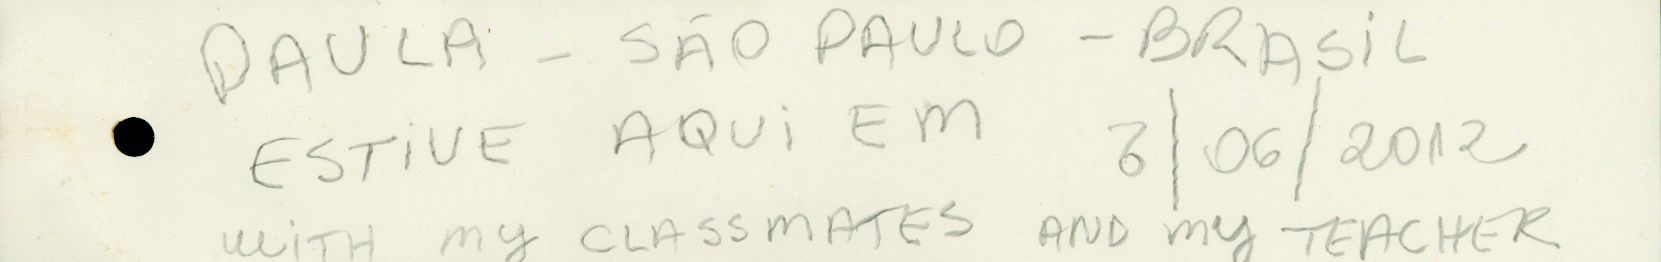 PAULA - SÃO PAULO - BRASIL
ESTIVE AQUI EM 3/06/2012
WITH MY CLASSMATES AND MY TEACHER